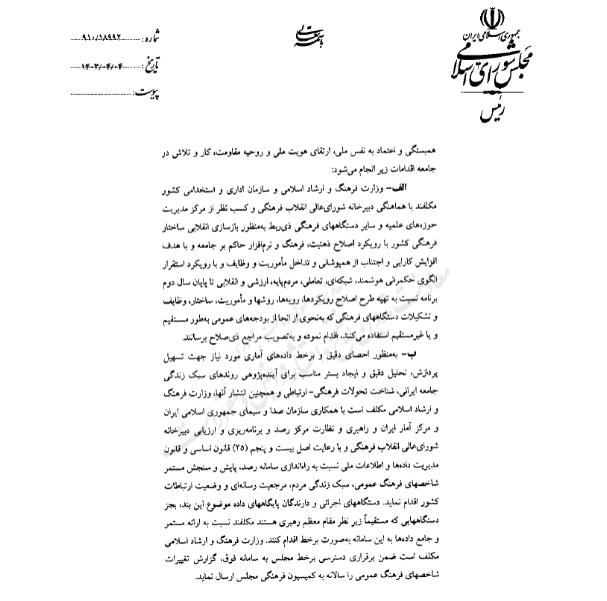 جمهوری اسلامی ایران
مجلس شورای اسلامی
رئیس
باسمه تعالی
شماره: ۹۱۰/۱۸۹۹۲
تاریخ: ۱۴۰۳/۰۴/۰۴
پیوست:
همبستگی و اعتماد به نفس ملی، ارتقای هویت ملی و روحیه مقاومت، کار و تلاش در
جامعه اقدامات زیر انجام می‌شود:
الف- وزارت فرهنگ و ارشاد اسلامی و سازمان اداری و استخدامی کشور
مکلفند با هماهنگی دبیرخانه شورای‌عالی انقلاب فرهنگی و کسب نظر از مرکز مدیریت
حوزه‌های علمیه و سایر دستگاههای فرهنگی ذی‌ربط به‌منظور بازسازی انقلابی ساختار
فرهنگی کشور با رویکرد اصلاح ذهنیت، فرهنگ و نرم‌افزار حاکم بر جامعه و با هدف
افزایش کارایی و اجتناب از همپوشانی و تداخل مأموریت و وظایف و با رویکرد استقرار
الگوی حکمرانی هوشمند، شبکه‌ای، تعاملی، مردم‌پایه، ارزشی و انقلابی تا پایان سال دوم
برنامه نسبت به تهیه طرح اصلاح رویکردها، رویه‌ها، روشها و مأموریت، ساختار، وظایف
و تشکیلات دستگاههای فرهنگی که به‌نحوی از انحا از بودجه‌های عمومی به‌طور مستقیم
و یا غیرمستقیم استفاده می‌کنند، اقدام نموده و به‌تصویب مراجع ذی‌صلاح برسانند.
ب- به‌منظور احصای دقیق و برخط داده‌های آماری مورد نیاز جهت تسهیل
پردازش، تحلیل دقیق و ایجاد بستر مناسب برای آینده‌پژوهی روندهای سبک زندگی
جامعه ایرانی، شناخت تحولات فرهنگی- ارتباطی و همچنین انتشار آنها، وزارت فرهنگ
و ارشاد اسلامی مکلف است با همکاری سازمان صدا و سیمای جمهوری اسلامی ایران
و مرکز آمار ایران و راهبری و نظارت مرکز رصد و برنامه‌ریزی و ارزیابی دبیرخانه
شورای‌عالی انقلاب فرهنگی و با رعایت اصل بیست و پنجم (۲۵) قانون اساسی و قانون
مدیریت داده‌ها و اطلاعات ملی نسبت به راه‌اندازی سامانه رصد، پایش و سنجش مستمر
شاخصهای فرهنگ عمومی، سبک زندگی مردم، مرجعیت رسانه‌ای و وضعیت ارتباطات
کشور اقدام نماید. دستگاههای اجرائی و دارندگان پایگاههای داده موضوع این بند، بجز
دستگاههایی که مستقیماً زیر نظر مقام معظم رهبری هستند مکلفند نسبت به ارائه مستمر
و جامع داده‌ها به این سامانه به‌صورت برخط اقدام کنند. وزارت فرهنگ و ارشاد اسلامی
مکلف است ضمن برقراری دسترسی برخط مجلس به سامانه فوق، گزارش تغییرات
شاخصهای فرهنگ عمومی را سالانه به کمیسیون فرهنگی مجلس ارسال نماید.